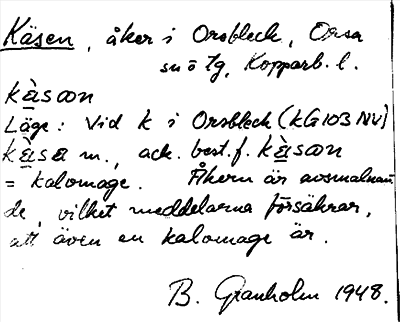 Käsen, åker i Orsbleck, Orsa
sn o tg, Kopparb. l.
kä̀sɷn
Läge: Vid k i Orsbleck (KG103 NV)
kä̀sa m., ack. best. f. kä̀sɷn
= kalomage. Åkern är avsmalnan
de, vilket meddelarna försäkrar,
att även en kalomage är.
B. Granholm 1948.